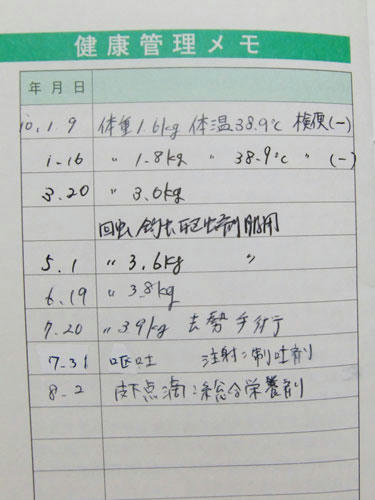 健康管理メモ
年月日
10.1.9 体重1.6kg 体温38.9℃ 検便(-)
1.16 〃 1.8kg 〃 38.9℃ 〃 (-)
3.20 〃 3.0kg
回虫/鈎虫駆虫剤服用
5.1 〃 3.6kg 〃
6.19 〃 3.8kg
7.20 〃 3.9kg 去勢手術
7.31 嘔吐 注射:制吐剤
8.2 皮下点滴:総合栄養剤